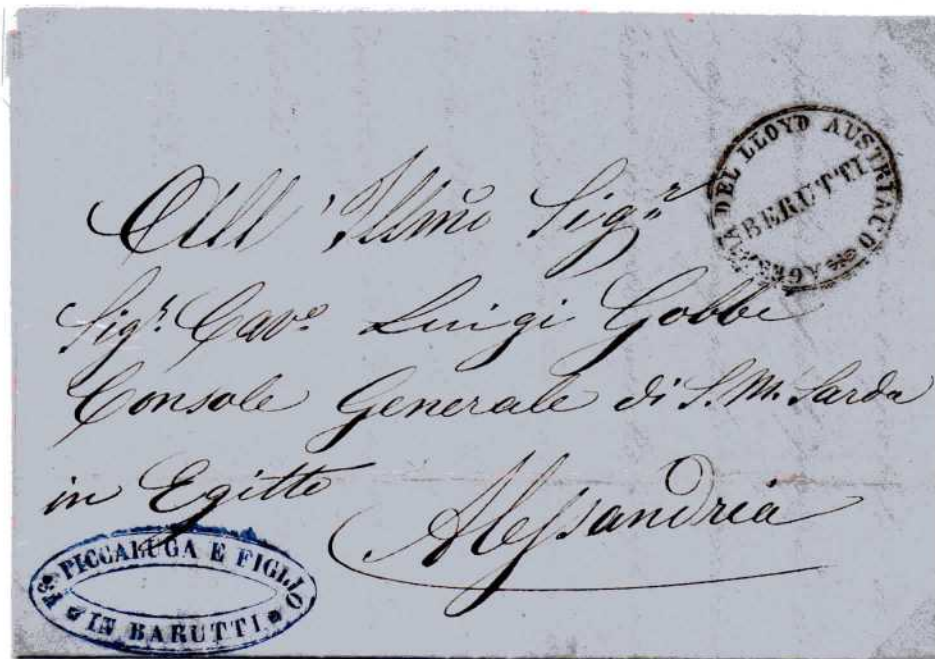 AGENZIA DEL LLOYD AUSTRIACO
BERUTTI
All' Illmo Sigr
Sigr Cave Luigi Gobbi
Console Generale di S. M. Sarda
in Egitto
Alessandria
Fco PICCALUGA E FIGLIO
IN BARUTTI